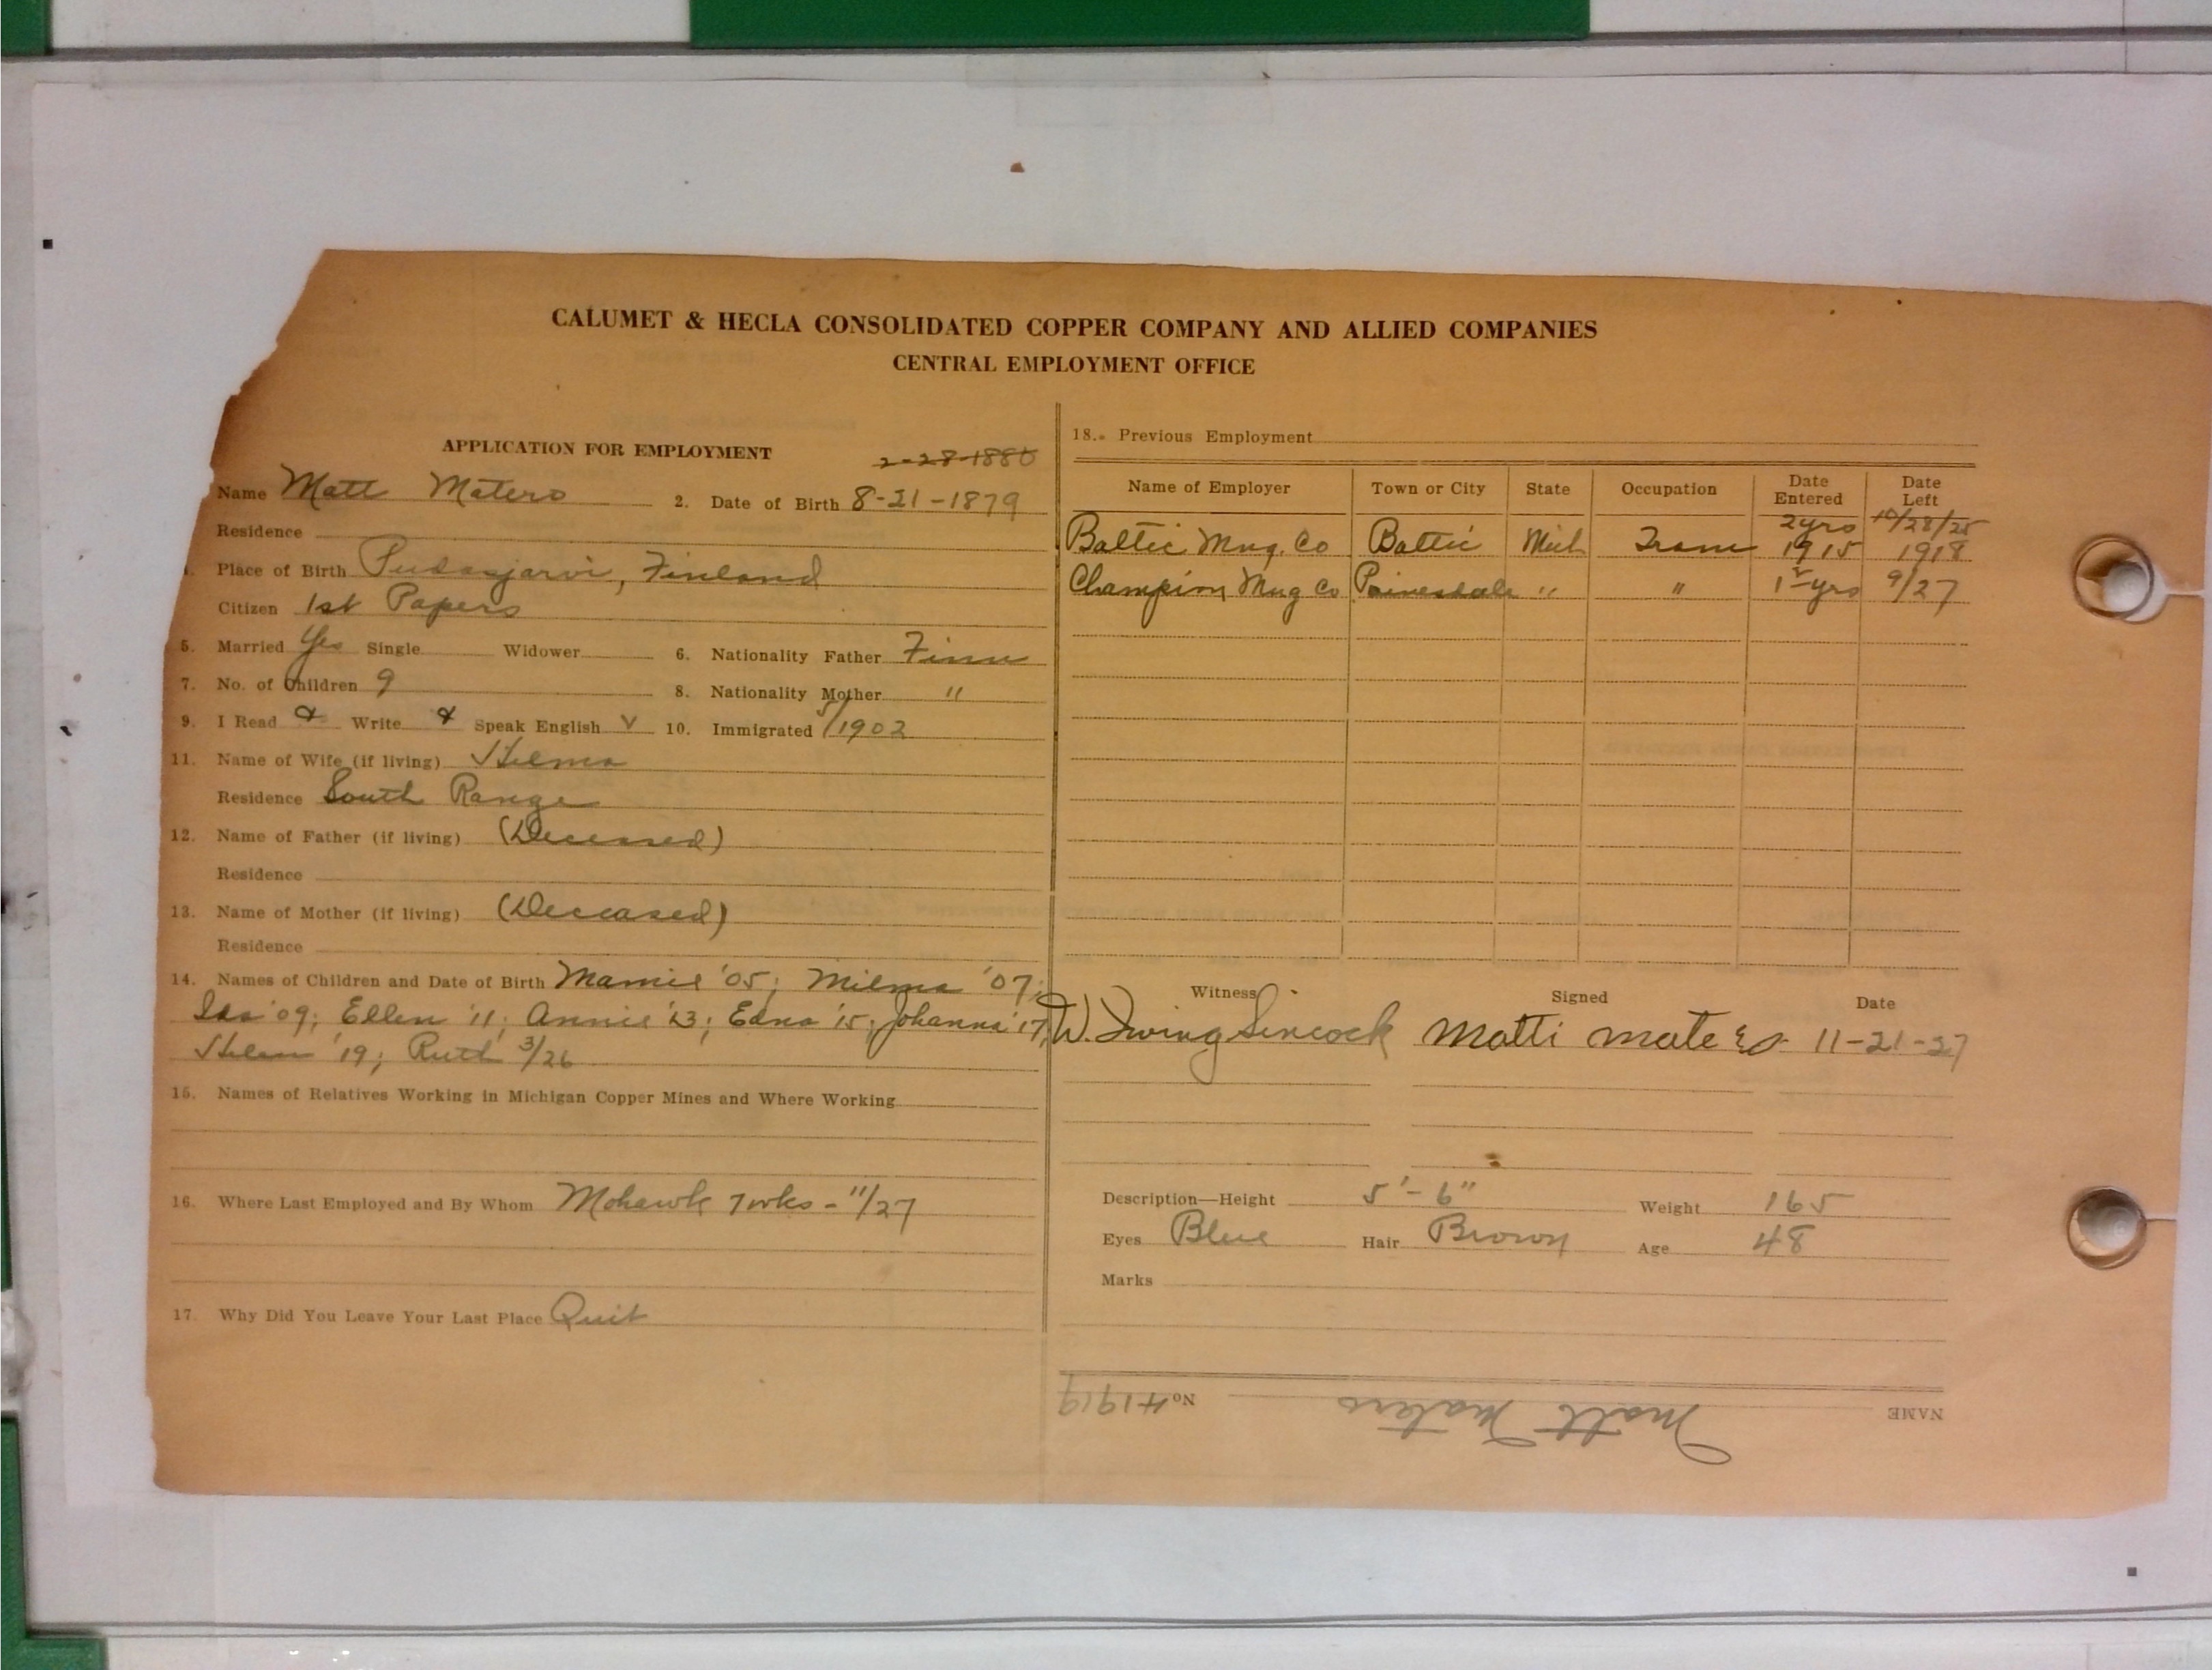 CALUMET & HECLA CONSOLIDATED COPPER COMPANY AND ALLIED COMPANIES
CENTRAL EMPLOYMENT OFFICE
APPLICATION FOR EMPLOYMENT
2-28-1880
Name Matt Matero 2. Date of Birth 8-21-1879
Residence
Place of Birth Pudasjarvi, Finland
Citizen 1st Papers
5. Married Yes Single Widower 6. Nationality Father Finn
7. No. of Children 9 8. Nationality Mother "
9. I Read & Write & Speak English v 10. Immigrated 5/1902
11. Name of Wife (if living) Hilma
Residence South Range
12. Name of Father (if living) (Deceased)
Residence
13. Name of Mother (if living) (Deceased)
Residence
14. Names of Children and Date of Birth Mamie '05; Milma '07;
Ida '09; Ellen '11; Annie '13; Edna '15; Johanna '17;
'19; Ruth 3/26
15. Names of Relatives Working in Michigan Copper Mines and Where Working
16. Where Last Employed and By Whom Mohawk 7 wks - 11/27
17. Why Did You Leave Your Last Place Quit
18. Previous Employment
Name of Employer Town or City State Occupation Date Entered Date Left
2yrs 10/28/25
Baltic Mng. Co Baltic Mich Tram 1915 1918
Champion Mng Co Painesdale " " yrs 9/27
Witness Signed Date
W. Irving Sincock Matti Matero 11-21-27
Description—Height 5'-6" Weight 165
Eyes Blue Hair Brown Age 48
Marks
NAME Matt Matero No 41919